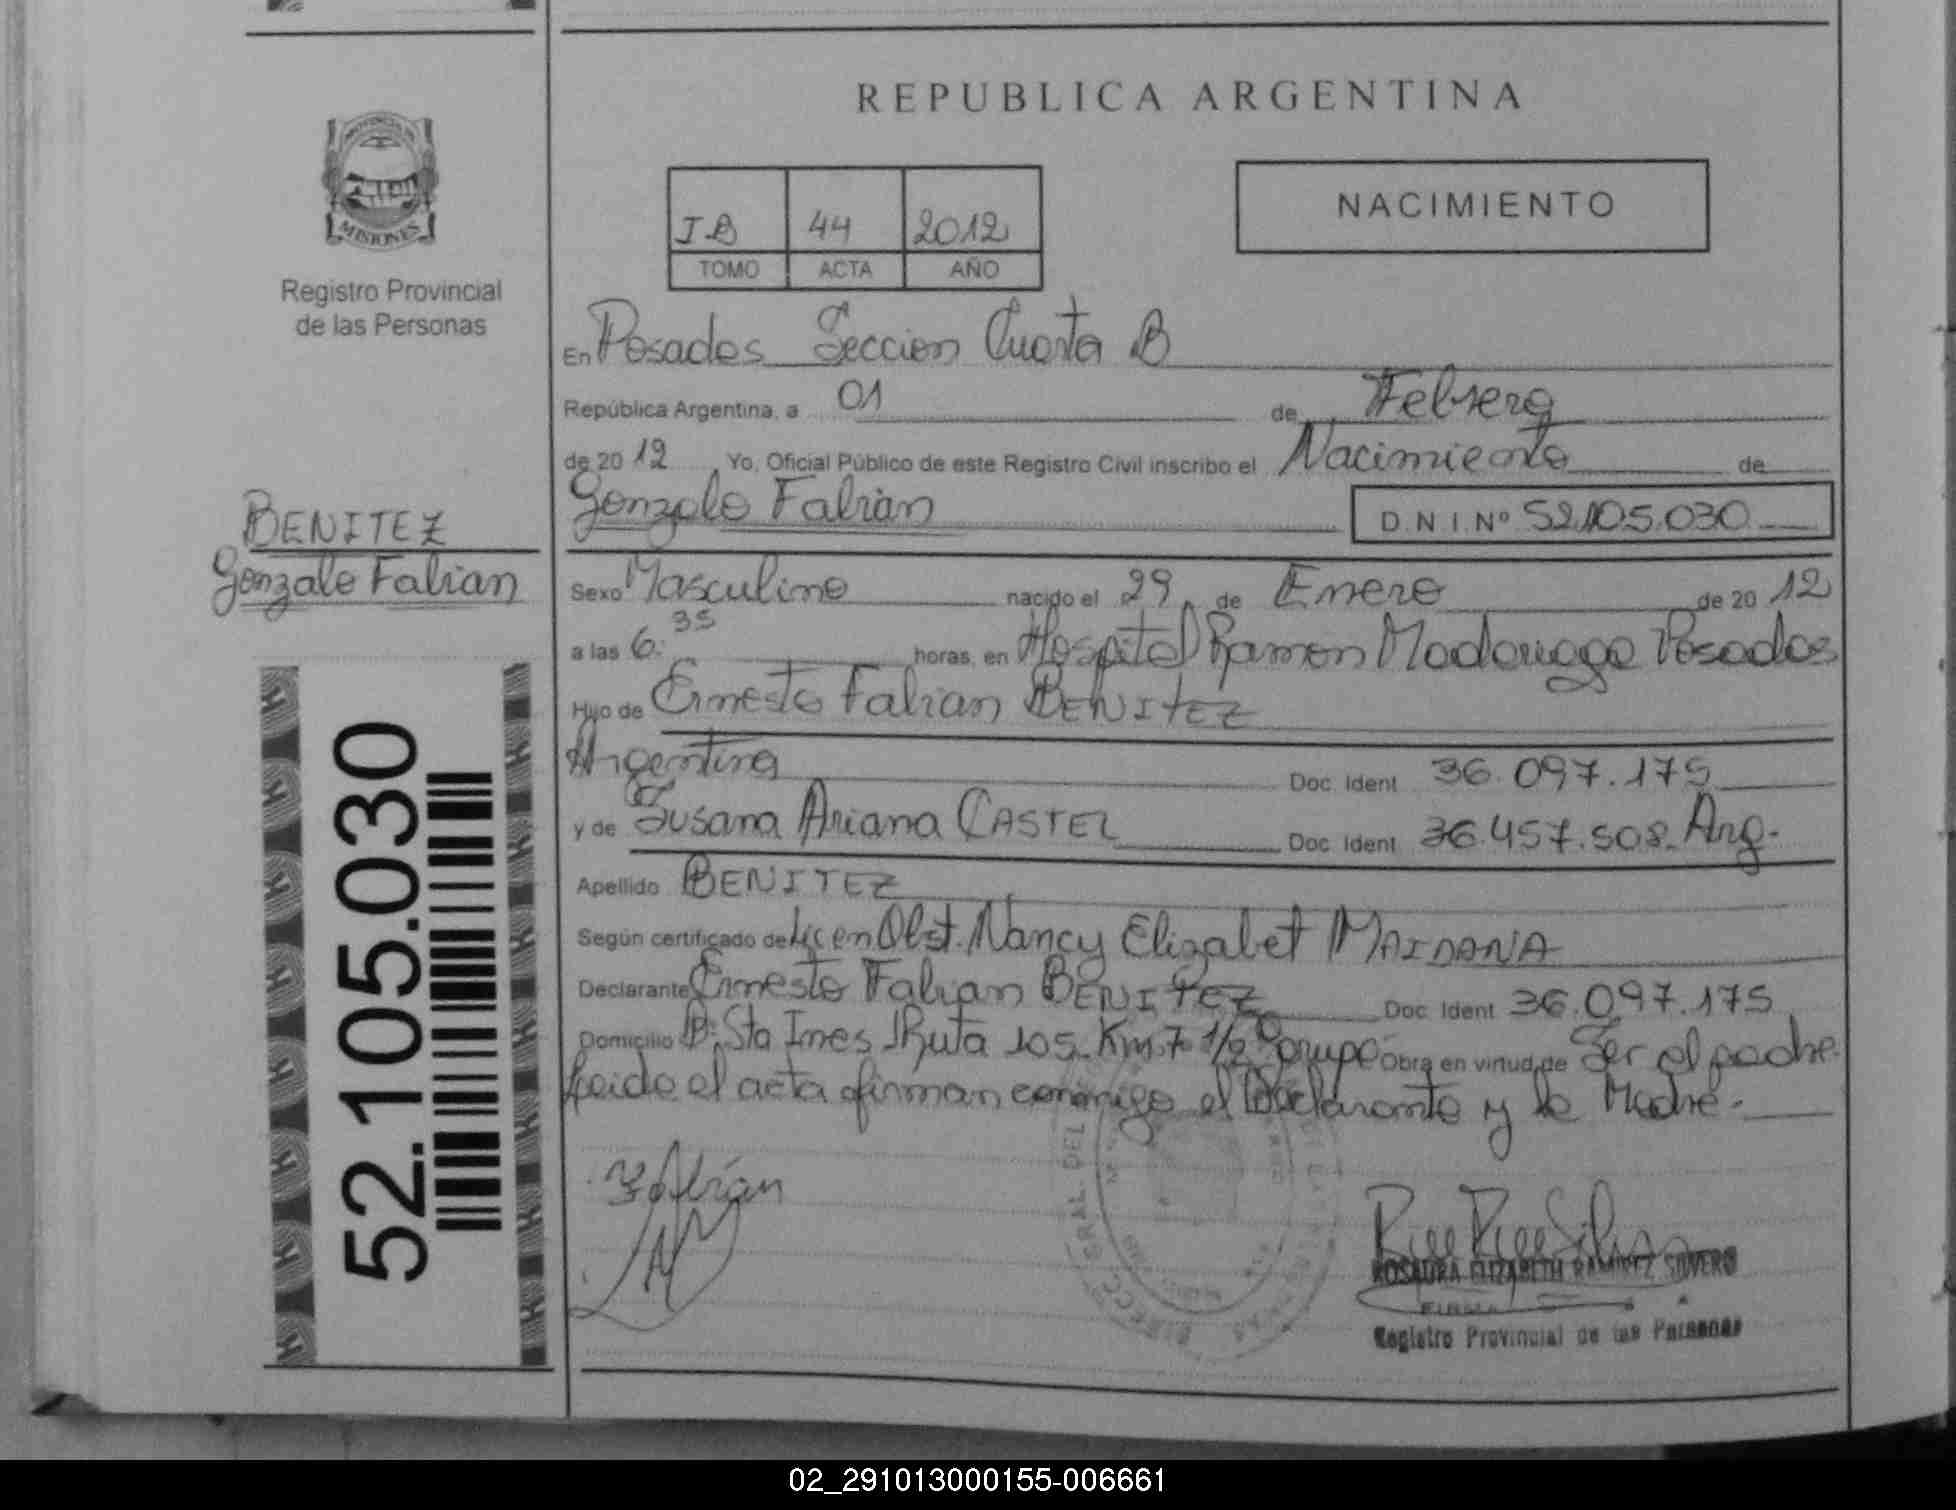 REPUBLICA ARGENTINA
PROVINCIA DE
MISIONES
Registro Provincial
de las Personas
I-B 44 2012
TOMO ACTA AÑO
NACIMIENTO
En Posadas Seccion Cuarta B
República Argentina, a 01 de Febrero
de 20 12 Yo, Oficial Público de este Registro Civil inscribo el Nacimiento de
Gonzalo Fabián D.N.I.Nº 52.105.030
BENITEZ
Gonzalo Fabian
Sexo Masculino nacido el 29 de Enero de 20 12
a las 6:35 horas, en Hospital Ramon Madariaga Posadas
Hijo de Ernesto Fabian BENITEZ
Argentina Doc. Ident. 36.097.175
y de Susana Ariana CASTEL Doc. Ident. 36.457.508 Arg.
Apellido BENITEZ
Según certificado de Licen Obst. Nancy Elizabet MAIDANA
Declarante Ernesto Fabian BENITEZ Doc. Ident. 36.097.175
Domicilio B: Sta Ines Ruta 105 Km 7 1/2 grupo Obra en virtud de Ser el padre
Leida el acta firman conmigo el Declarante y la Madre.
52.105.030
Fabián
ROSAURA ELIZABETH RAMIREZ SILVERO
FIRMA
Registro Provincial de las Personas
02_291013000155-006661